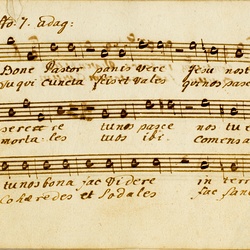 No: 7. Adag:
Bone Pastor panis vere Jesu nos
Tu qui cuncta scis et vales qui nos pasc
serere re tu nos pasce nos tu
morta. les tuos ibi. Comensa
tu nos bona fac videre in terr
Cohæredes et sodales fac sanc